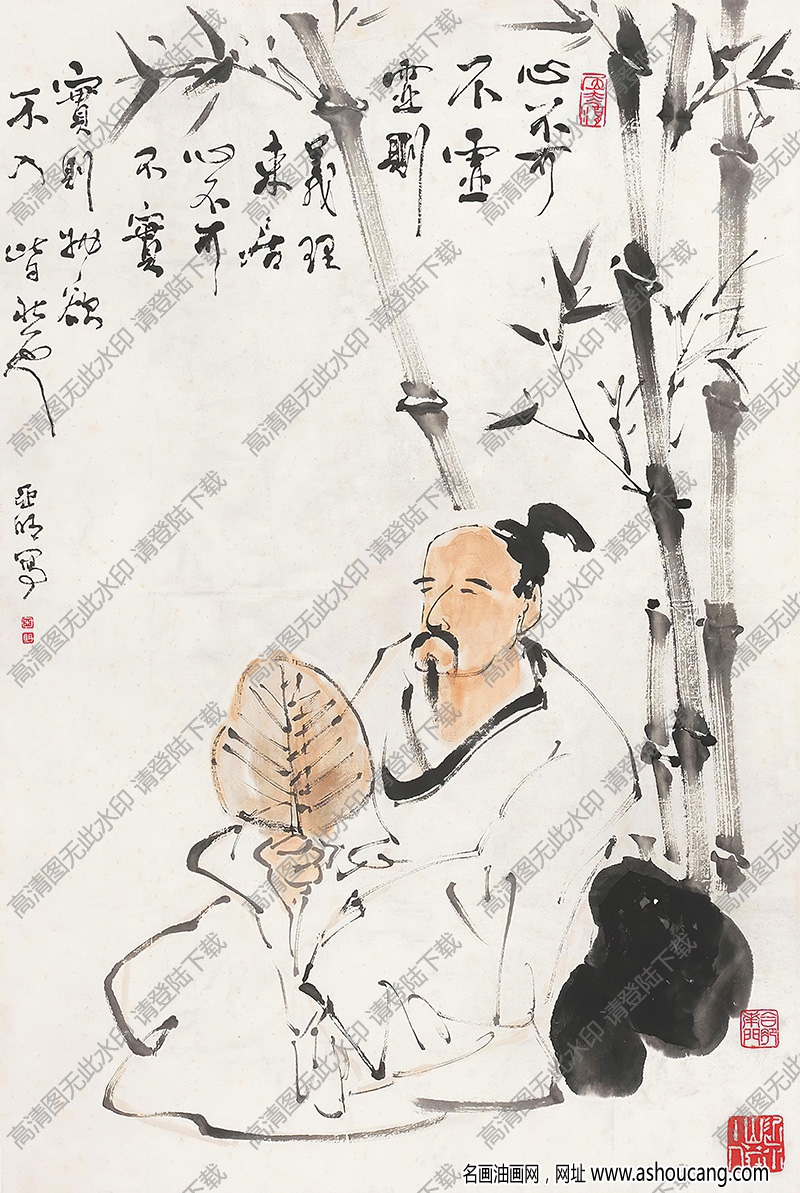 心不可
不虛
虛則
義理
來居
心不可
不實
實則物欲
不入皆
亞明寫
高清图无此水印 请登陆下载
名画油画网，网址 www.ashoucang.com